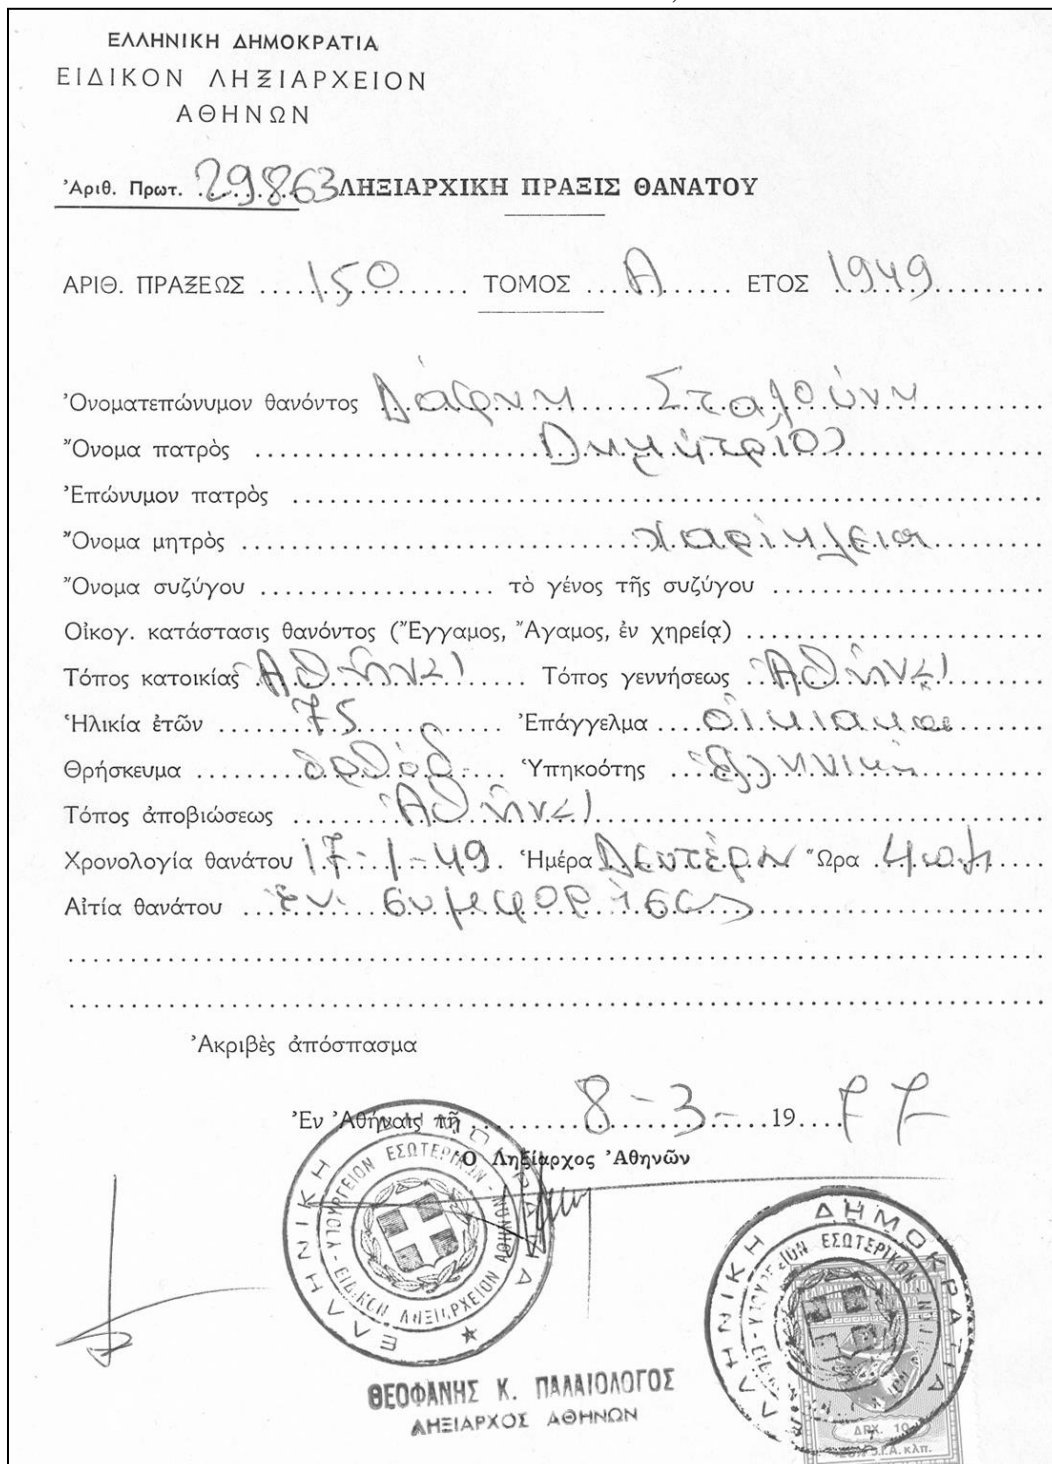 ΕΛΛΗΝΙΚΗ ΔΗΜΟΚΡΑΤΙΑ
ΕΙΔΙΚΟΝ ΛΗΞΙΑΡΧΕΙΟΝ
ΑΘΗΝΩΝ
Ἀριθ. Πρωτ. 29863 ΛΗΞΙΑΡΧΙΚΗ ΠΡΑΞΙΣ ΘΑΝΑΤΟΥ
ΑΡΙΘ. ΠΡΑΞΕΩΣ 150 ΤΟΜΟΣ Α ΕΤΟΣ 1949
Ὀνοματεπώνυμον θανόντος Δάφνη
Ὄνομα πατρὸς Δημήτριος
Ἐπώνυμον πατρὸς
Ὄνομα μητρὸς Χαρίκλεια
Ὄνομα συζύγου τὸ γένος τῆς συζύγου
Οἰκογ. κατάστασις θανόντος (Ἔγγαμος, Ἄγαμος, ἐν χηρείᾳ)
Τόπος κατοικίας Ἀθῆναι Τόπος γεννήσεως Ἀθῆναι
Ἡλικία ἐτῶν 75 Ἐπάγγελμα οἰκιακα
Θρήσκευμα ὀρθόδ. Ὑπηκοότης ἑλληνική
Τόπος ἀποβιώσεως Ἀθῆναι
Χρονολογία θανάτου 17-1-49 Ἡμέρα Δευτέρα Ὥρα 4
Αἰτία θανάτου
Ἀκριβὲς ἀπόσπασμα
Ἐν Ἀθήναις τῇ 8-3- 1977
Ὁ Ληξίαρχος Ἀθηνῶν
ΕΛΛΗΝΙΚΗ ΔΗΜΟΚΡΑΤΙΑ
ΥΠΟΥΡΓΕΙΟΝ ΕΣΩΤΕΡΙΚΩΝ - ΕΙΔΙΚΟΝ ΛΗΞΙΑΡΧΕΙΟΝ ΑΘΗΝΩΝ
ΕΛΛΗΝΙΚΗ ΔΗΜΟΚΡΑΤΙΑ
ΕΣΩΤΕΡΙΚΩΝ
ΔΡΧ. 10
ΘΕΟΦΑΝΗΣ Κ. ΠΑΛΑΙΟΛΟΓΟΣ
ΛΗΞΙΑΡΧΟΣ ΑΘΗΝΩΝ